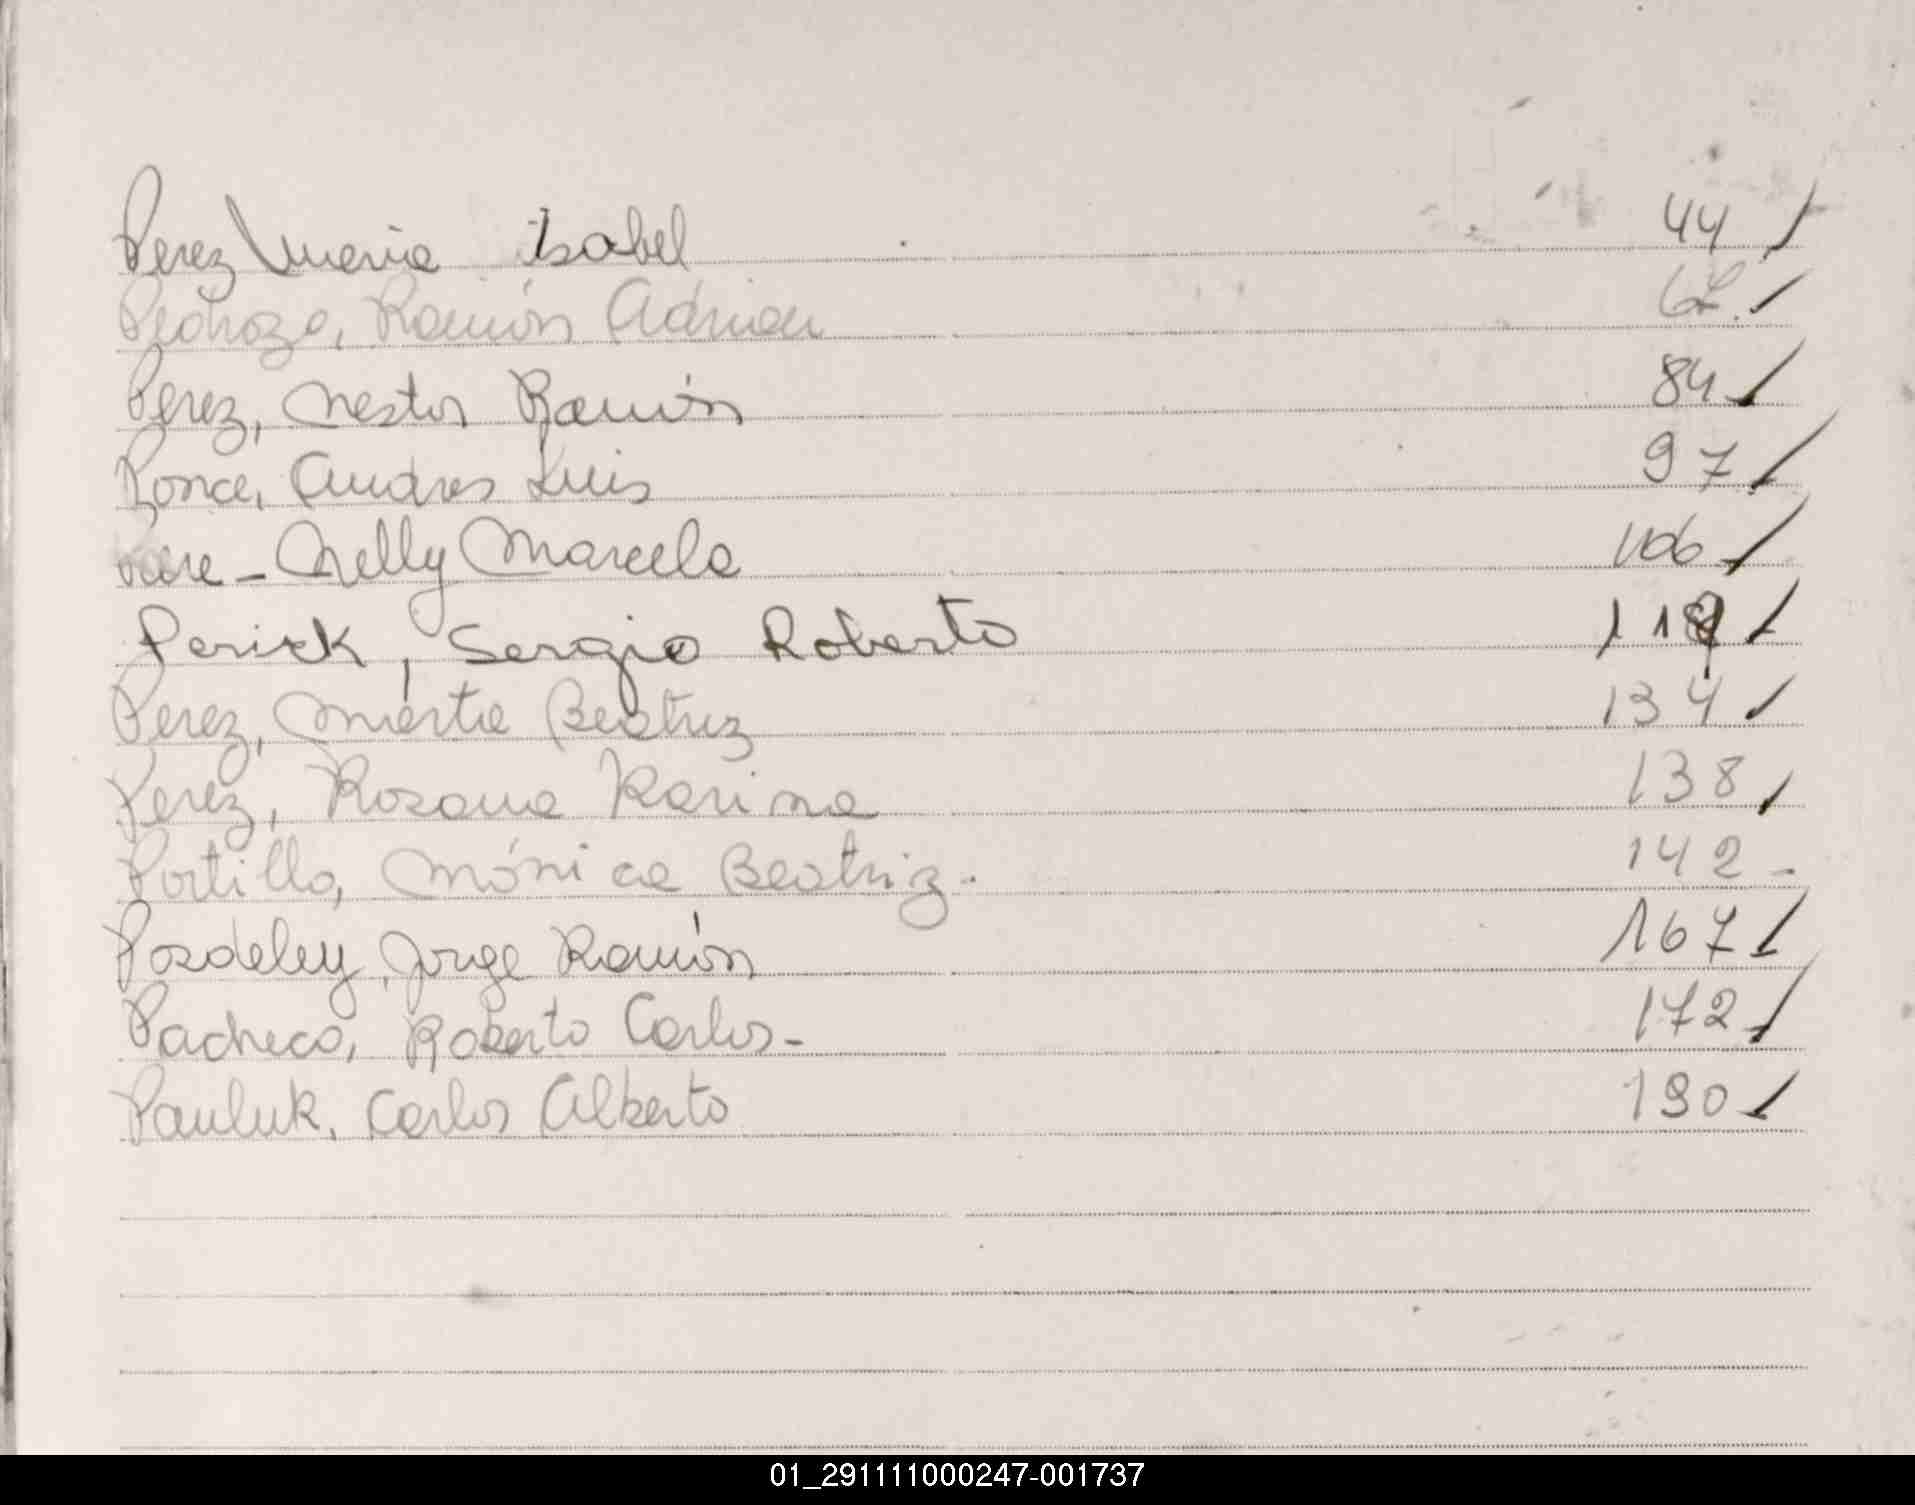 Perez Maria Isabel 44
Pedrozo, Ramón Adrian 62
Perez, Nestor Ramón 84
Ponce, Andres Luis 97
Nelly Marcela 106
Perick, Sergio Roberto 119
Perez, Mirta Beatriz 134
Perez, Rosana Karina 138
Portillo, Mónica Beatriz. 142
Pozdeley, Jorge Ramón 167
Pacheco, Roberto Carlos- 172
Pauluk, Carlos Alberto 190
01_291111000247-001737